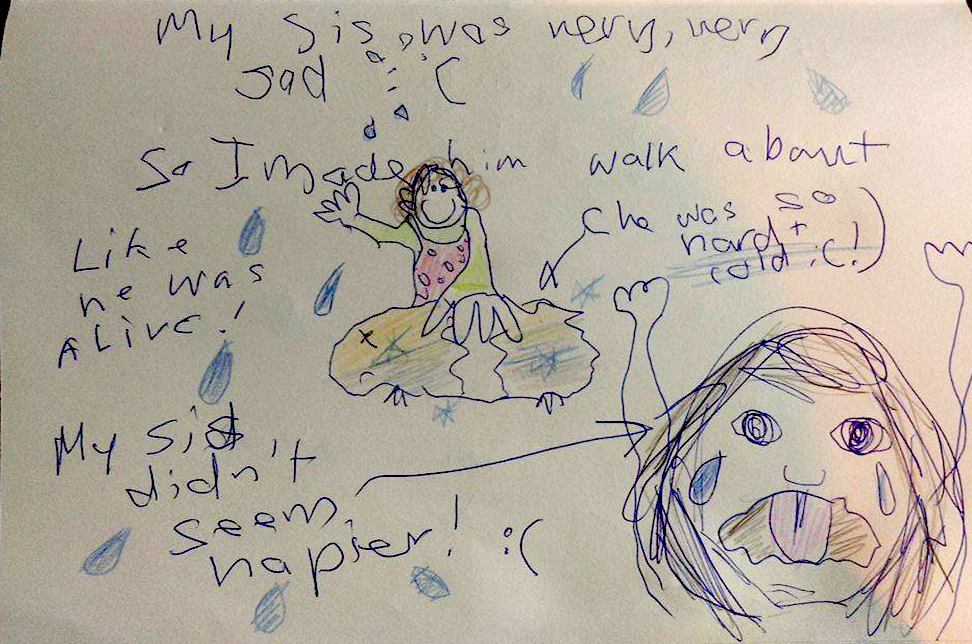 My sis was very, very
sad :'(
So I made him walk about
(he was so
hard +
cold :(!)
Like
he was
ALive!
My sis
didn't
seem
hapier! :(